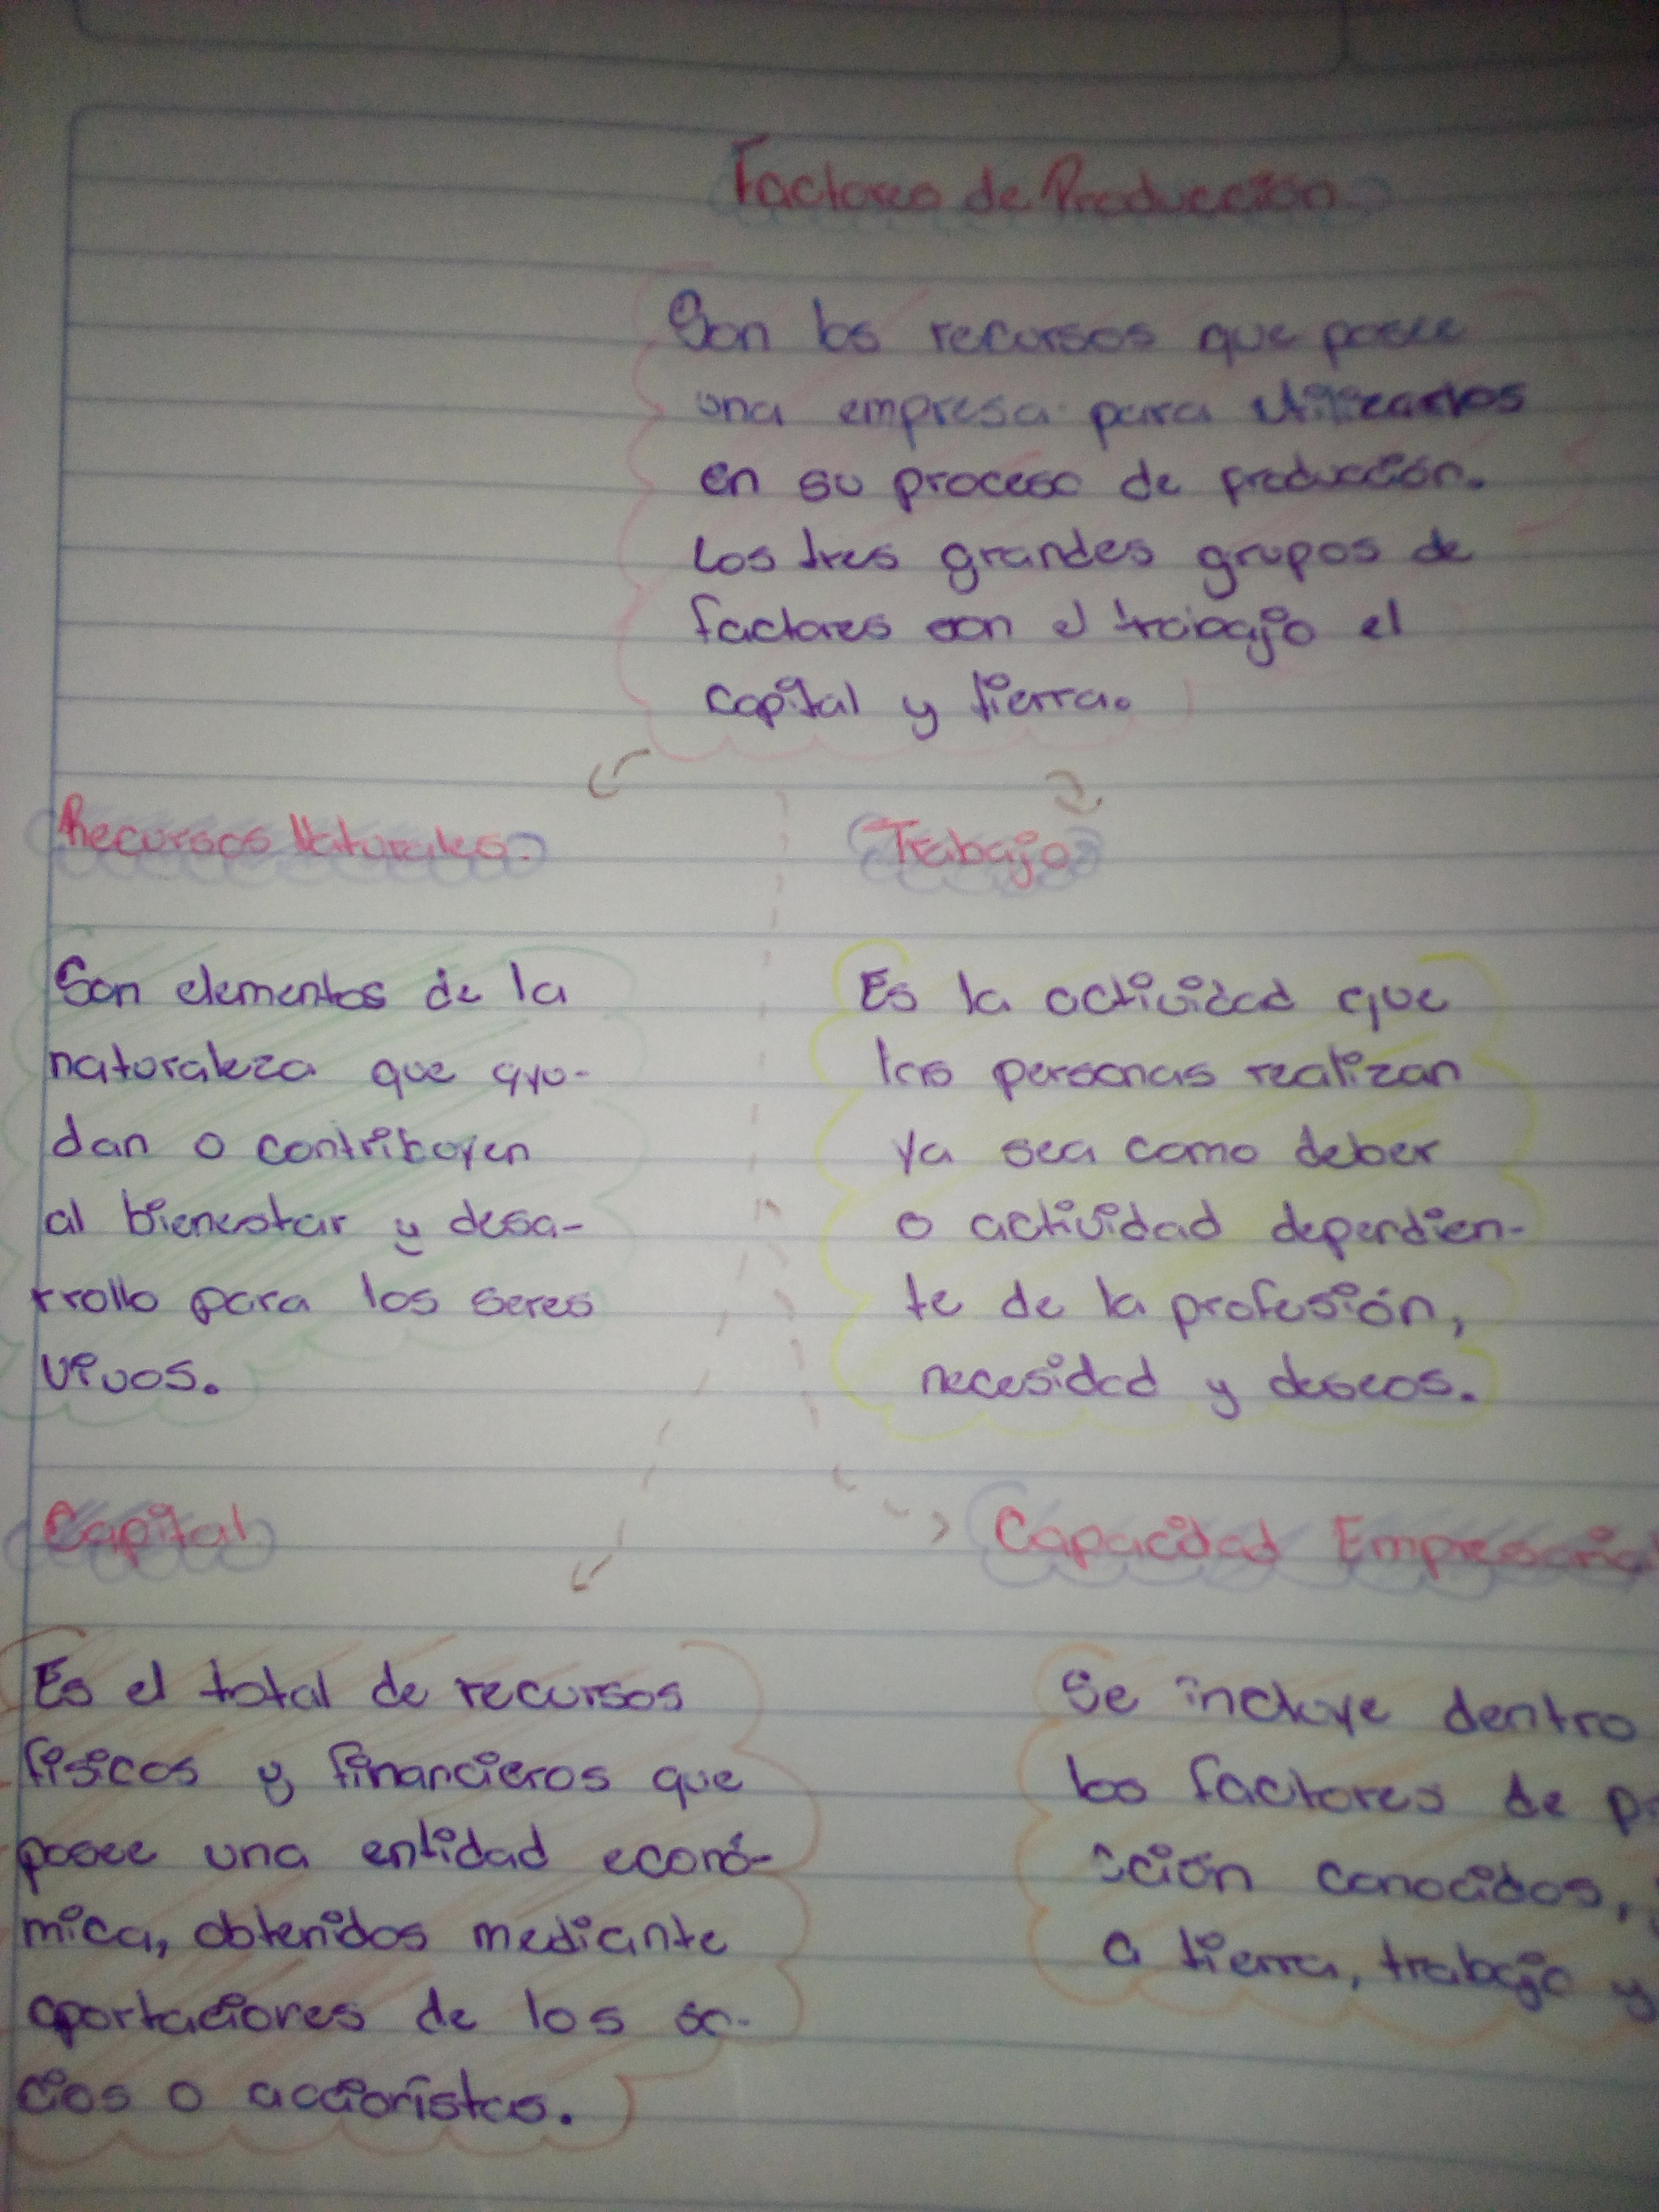 Factores de Producción
Son los recursos que posee
una empresa para utilizarlos
en su proceso de producción.
Los tres grandes grupos de
factores son el trabajo el
capital y tierra.
Recursos Naturales.
Son elementos de la
naturaleza que ayu-
dan o contribuyen
al bienestar y desa-
rrollo para los seres
vivos.
Trabajo
Es la actividad que
las personas realizan
ya sea como deber
o actividad dependien-
te de la profesión,
necesidad y deseos.
Capital
Es el total de recursos
fisicos y financieros que
posee una entidad econó-
mica, obtenidos mediante
aportaciones de los so-
cios o accionistas.
Capacidad Empresarial
Se incluye dentro
los factores de
cción conocidos,
a tierra, trabajo y